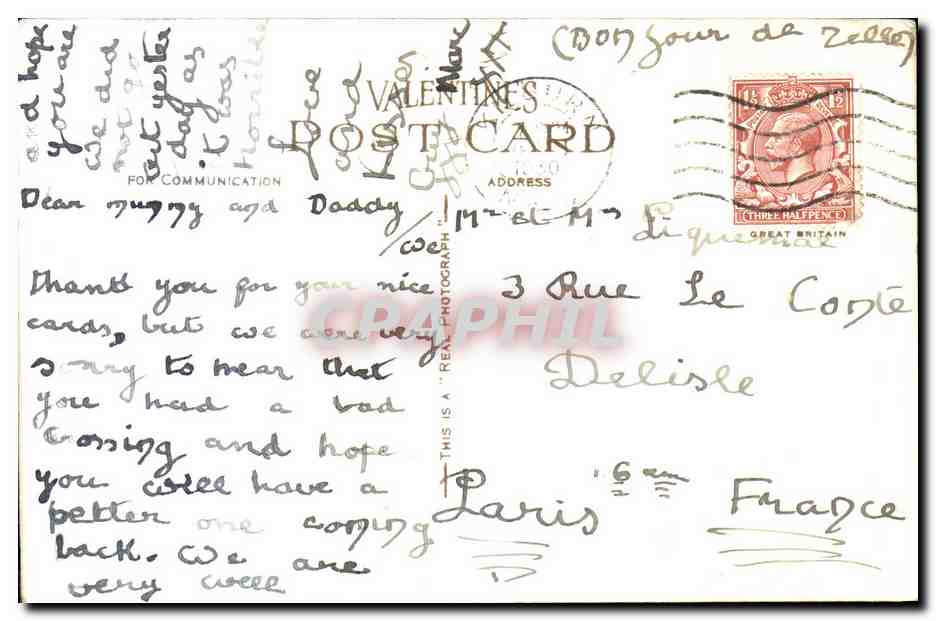 Dear mummy and Daddy
we
thank you for your nice
cards, but we were very
sorry to hear that
you had a bad
crossing and hope
you will have a
petter one coming
back. We are
very well
and hope
you are
we did
not go
out yester
day as
it was
horrible
Love
and
Kisses
Guy
Marc
XXX
XXX
(Bonjour de Zellee)
VALENTINES
POST CARD
FOR COMMUNICATION
ADDRESS
THIS IS A "REAL PHOTOGRAPH"
THREE HALFPENCE
1½
½
GREAT BRITAIN
Mr et Mrs
3 Rue Le Conte
Delisle
Paris 6 em
France
CPAPHIL